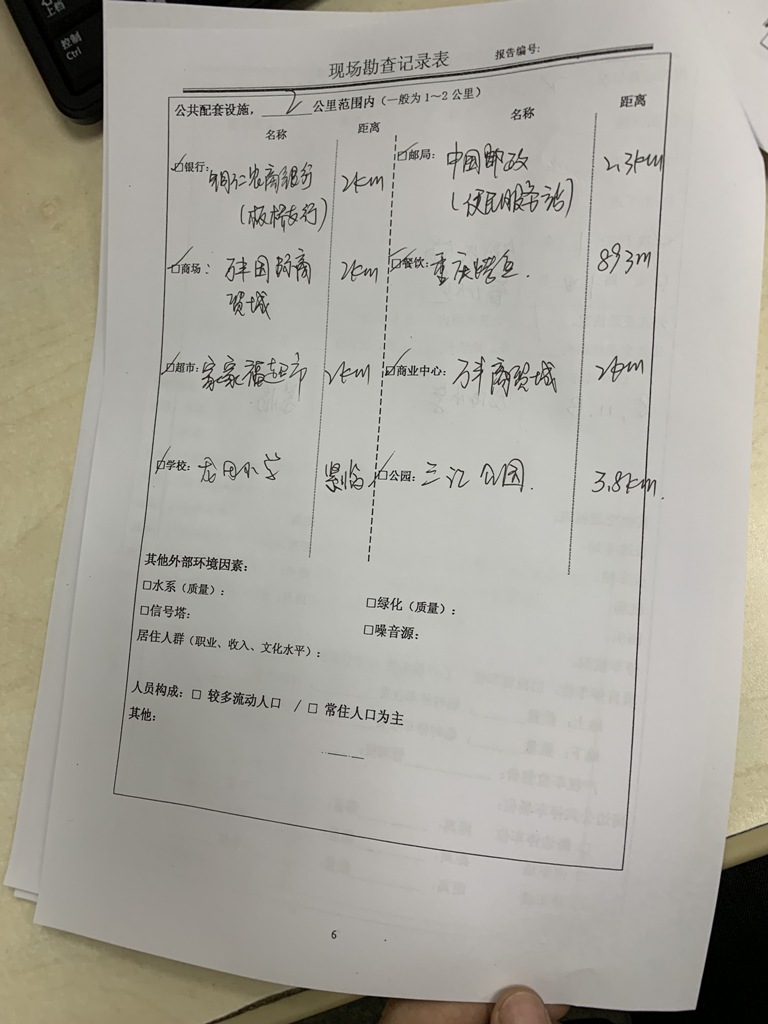 控制
Ctrl
现场勘查记录表
报告编号:
公共配套设施，2公里范围内（一般为1～2公里）
名称 距离 名称 距离
☑银行: 铜仁农商银行 2km ☑邮局: 中国邮政 2.3km
（板桥支行） （便民服务站）
☑商场: 万丰国际商 2km ☑餐饮: 重庆烤鱼. 893m
贸城
☑超市: 家家福超市 2km ☑商业中心: 万丰商贸城 2km
☑学校: 龙田小学 紧临 ☑公园: 三江公园. 3.8km.
其他外部环境因素:
□水系（质量）: □绿化（质量）:
□信号塔: □噪音源:
居住人群（职业、收入、文化水平）:
人员构成: □ 较多流动人口 / □ 常住人口为主
其他:
6